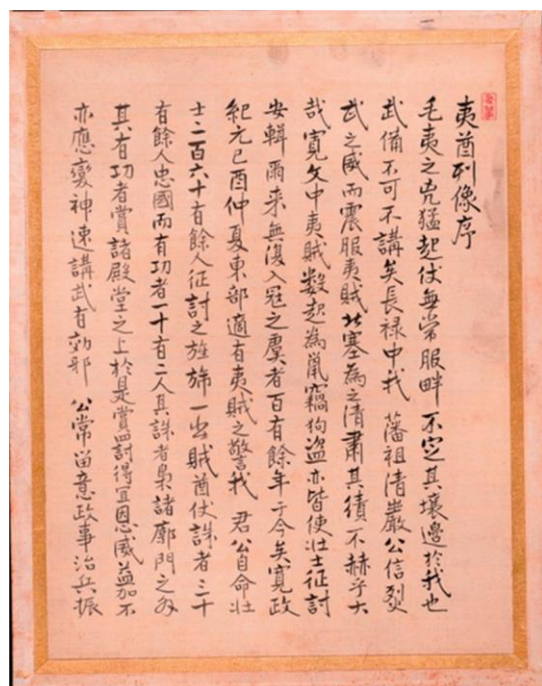 夷酋列像序
毛夷之兇猛起伏無常服畔不定其壤邊於我也
武備不可不講矣長禄中我 藩祖清巖公信烈
武之威而震服夷賊北塞為之清肅其績不赫乎大
哉寛文中夷賊数起為鼠竊狗盗亦皆使壮士征討
安輯爾来無復入冦之虞者百有餘年于今矣寛政
紀元己酉仲夏東部適有夷賊之警我 君公自命壮
士二百六十有餘人征討之旌旆一出賊酋伏誅者三十
有餘人忠國而有功者一十有二人其誅者梟諸廓門之外
其有功者賞諸殿堂之上於是賞罰得宜恩威益加不
亦應變神速講武有効邪 公常留意政事治兵振